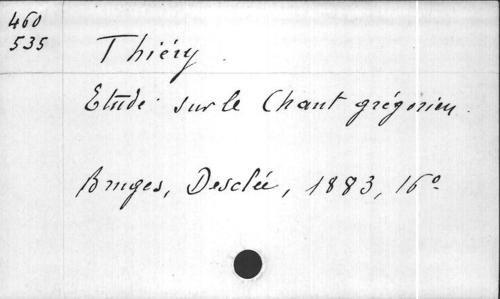 460
535
Thiéry.
Etude sur le Chant grégorien.
Bruges, Desclée, 1883, 16°